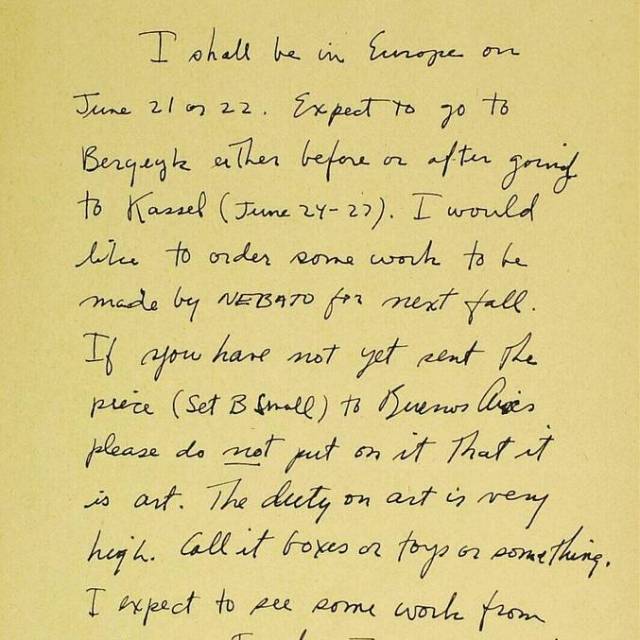 I shall be in Europe on
June 21 or 22. Expect to go to
Bergeyk either before or after going
to Kassel (June 24-27). I would
like to order some work to be
made by NEBATO for next fall.
If you have not yet sent the
piece (Set B Small) to Buenos Aires
please do not put on it that it
is art. The duty on art is very
high. Call it boxes or toys or something.
I expect to see some work from